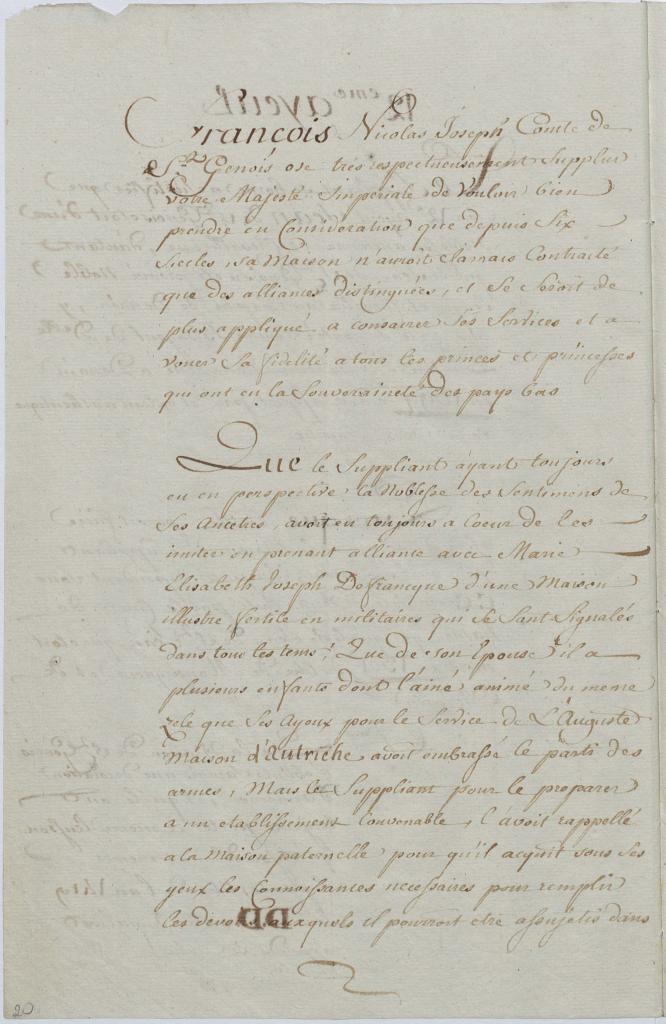 François Nicolas Joseph Comte de
St. Genois ose tres respectueusement Supplier
votre Majesté Imperiale de Vouloir bien
prendre en Consideration que depuis Six
Siecles, sa Maison n'auroit Jamais Contracté
que des alliances distinguées, et Se Seroit de
plus appliqué a consacrer Ses Services et a
vouer Sa fidelité a tous les princes et princesses
qui ont eu la Souveraineté des pays bas
Que le Suppliant ayant toujours
eu en perspective la Noblesse des Sentimens de
Ses Ancêtres, avoit eu toujours a Coeur de les
imiter en prenant alliance avec Marie
Elisabeth Joseph Defrancque d'une Maison
illustre, fertile en militaires qui Se Sont Signalés
dans tous les tems; Que de son Epouse il a
plusieurs enfants dont l'ainé animé du meme
zele que Ses Ayeux pour le Service de L'Auguste
Maison d'Autriche avoit embrassé le parti des
armes, Mais le Suppliant pour le preparer
a un etablissement Convenable, l'avoit rappellé
a la Maison paternelle pour qu'il acquit sous Ses
yeux les Connoissances necessaires pour remplir
les devoirs auxquels il pourroit etre assujetis dans
20